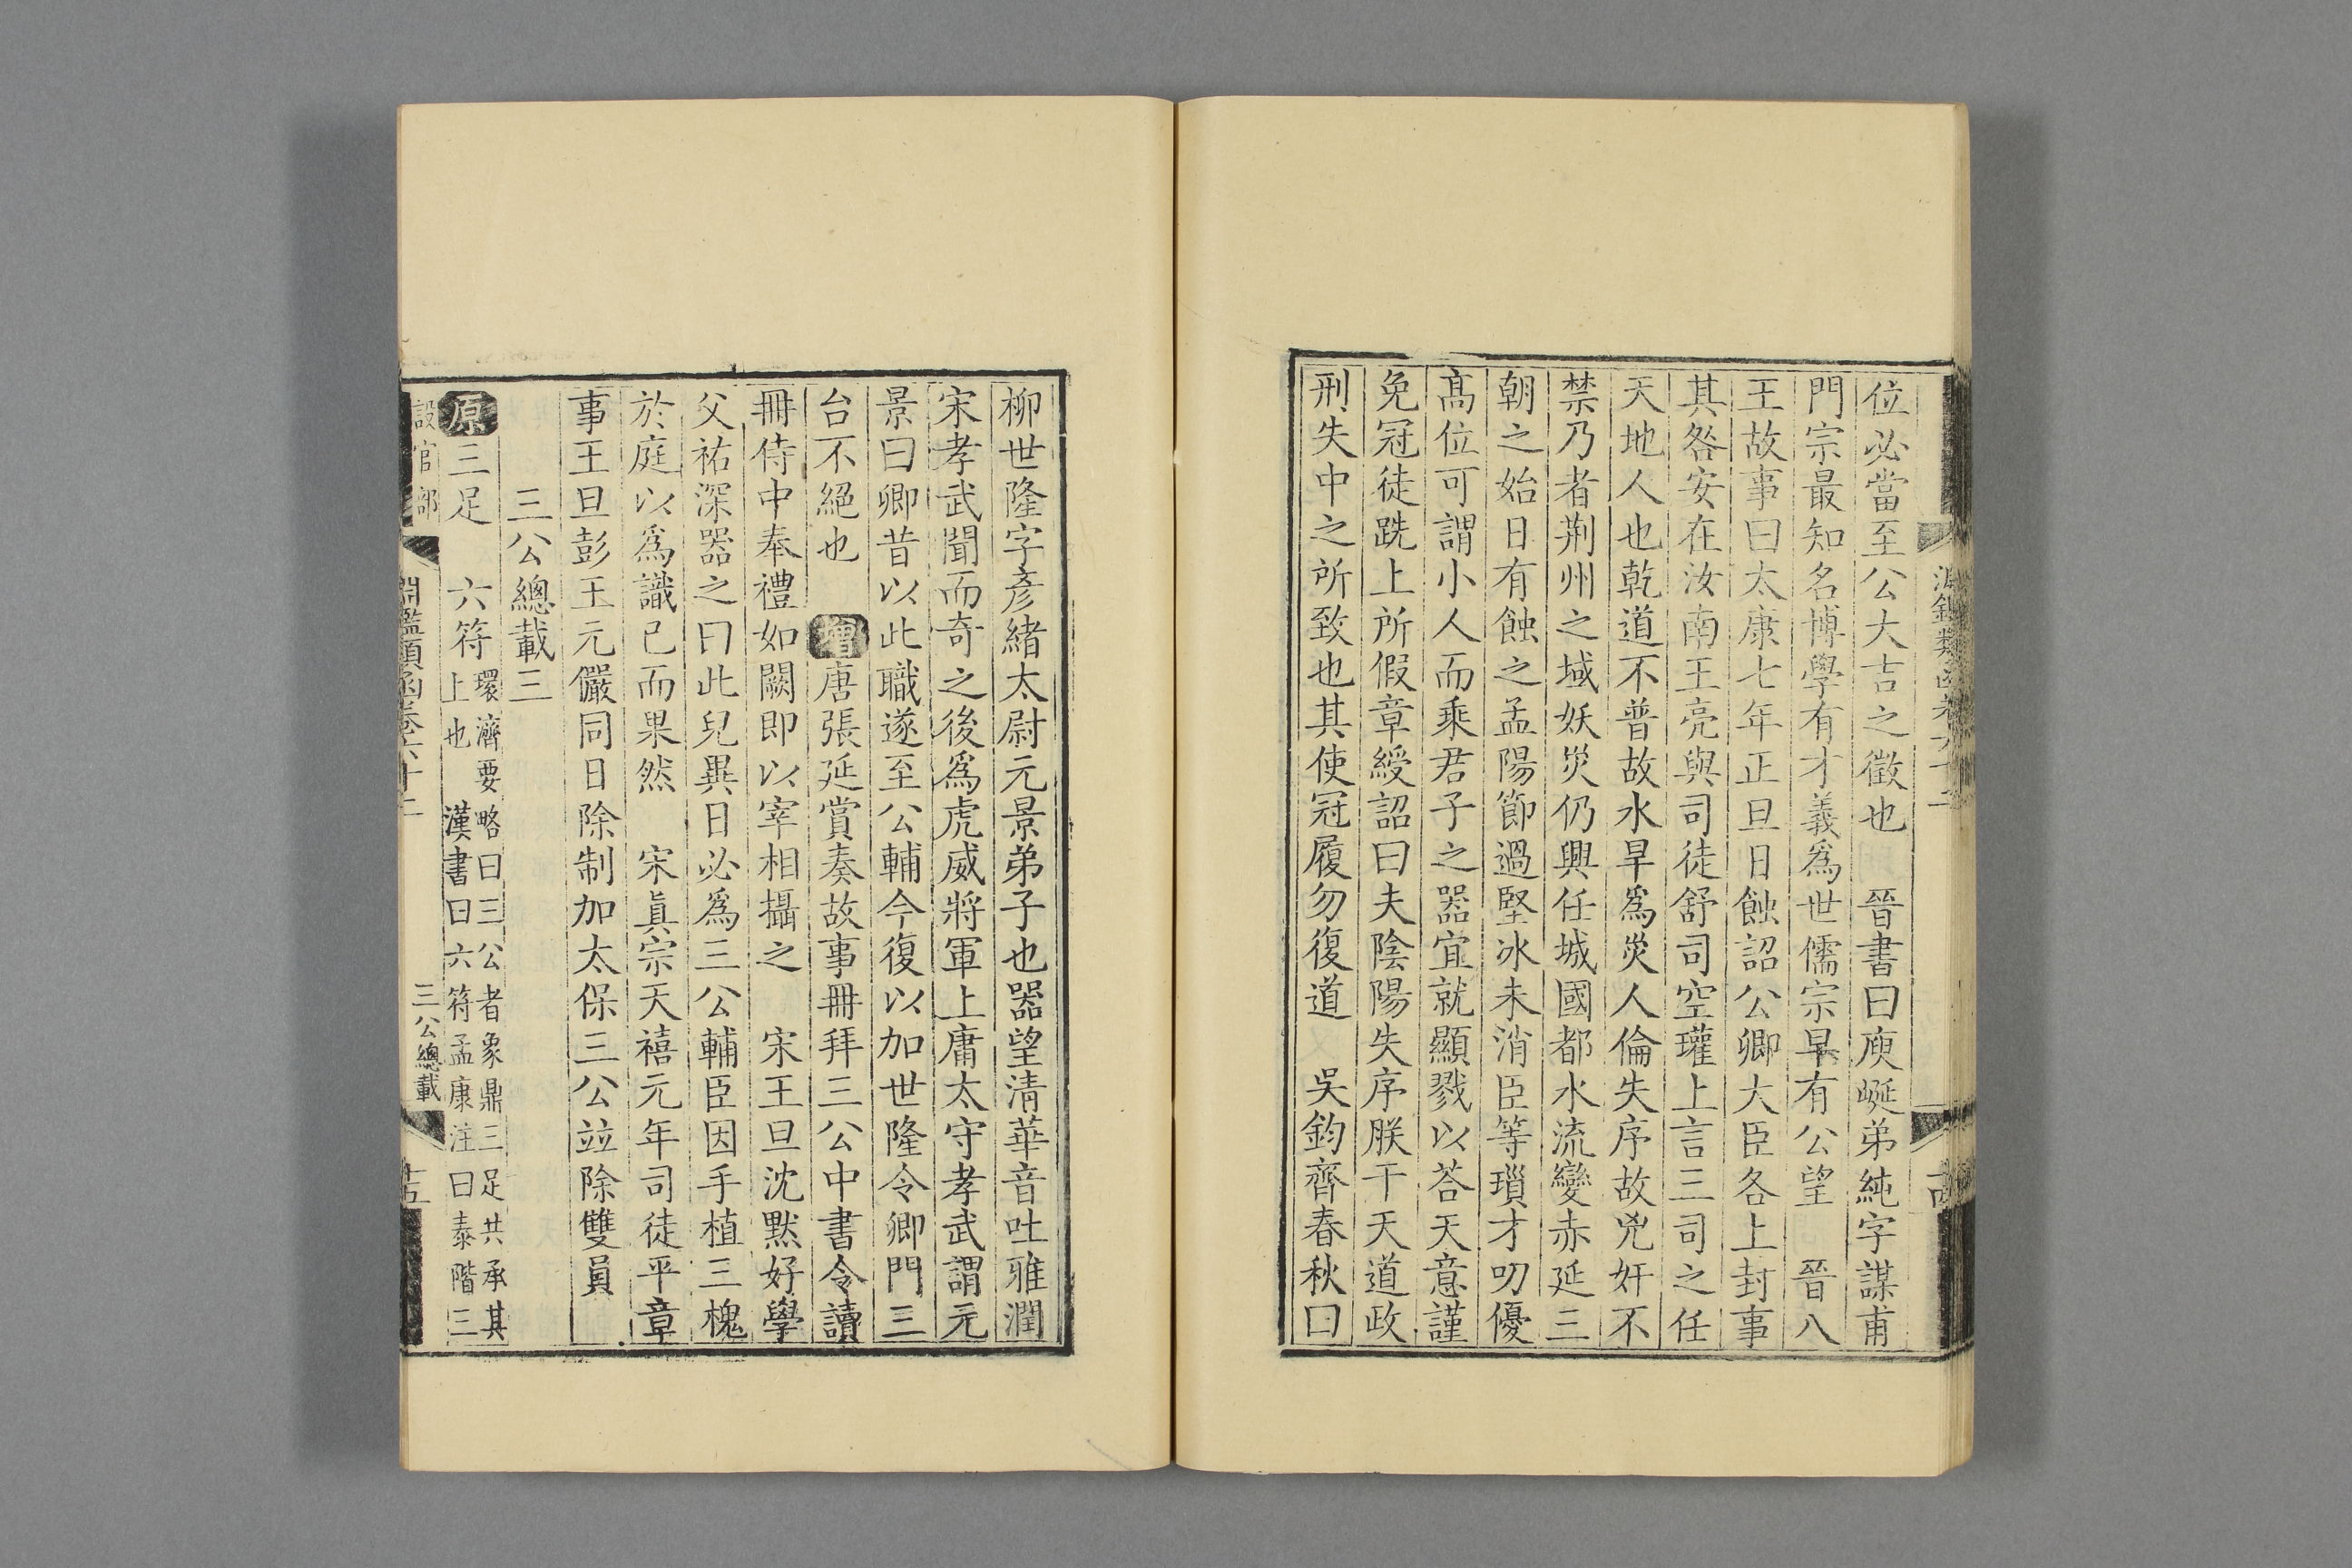 位必當至公大吉之徵也　晉書曰庾㟴弟純字謀甫
門宗最知名博學有才義爲世儒宗早有公望　晉八
王故事曰太康七年正旦日蝕詔公卿大臣各上封事
其咎安在汝南王亮與司徒舒司空瓘上言三司之任
天地人也乾道不普故水旱爲災人倫失序故兇奸不
禁乃者荆州之域妖災仍興任城國都水流變赤延三
朝之始日有蝕之孟陽節過堅冰未消臣等瑣才叨優
高位可謂小人而乘君子之器宜就顯戮以荅天意謹
免冠徒跣上所假章綬詔曰夫陰陽失序朕干天道政
刑失中之所致也其使冠履勿復道　吳鈞齊春秋曰
柳世隆字彥緒太尉元景弟子也器望清華音吐雅潤
宋孝武聞而奇之後爲虎威將軍上庸太守孝武謂元
景曰卿昔以此職遂至公輔今復以加世隆令卿門三
台不絕也　增唐張延賞奏故事冊拜三公中書令讀
冊侍中奉禮如闕即以宰相攝之　宋王旦沈默好學
父祐深器之曰此兒異日必爲三公輔臣因手植三槐
於庭以爲識已而果然　宋眞宗天禧元年司徒平章
事王旦彭王元儼同日除制加太保三公竝除雙員
三公總載三
原三足　六符環濟要略曰三公者象鼎三足共承其
上也　漢書曰六符孟康注曰泰階三
設官部　淵鑑類函卷六十二　三公總載　十五